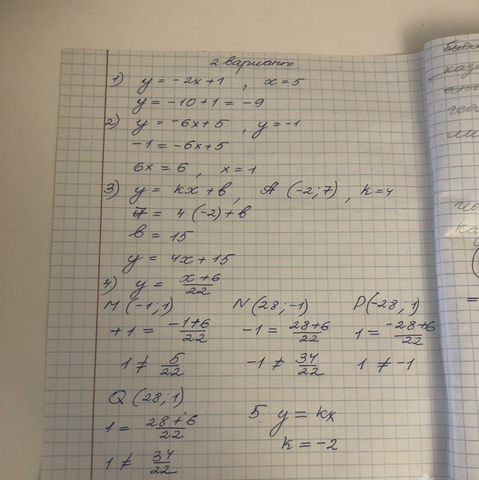 2 вариант
1) y = -2x+1 , x=5
y = -10+1 = -9
2) y = -6x+5 , y=-1
-1 = -6x+5
6x = 6 , x=1
3) y = kx+b, A (-2;7), k=4
7 = 4(-2)+b
b = 15
y = 4x+15
4) y = x+6/22
M(-1;1) N(28;-1) P(-28,1)
+1 = -1+6/22 -1 = 28+6/22 1 = -28+6/22
1 ≠ 5/22 -1 ≠ 34/22 1 ≠ -1
Q(28;1)
1 = 28+6/22
1 ≠ 34/22
5 y = kx
k = -2